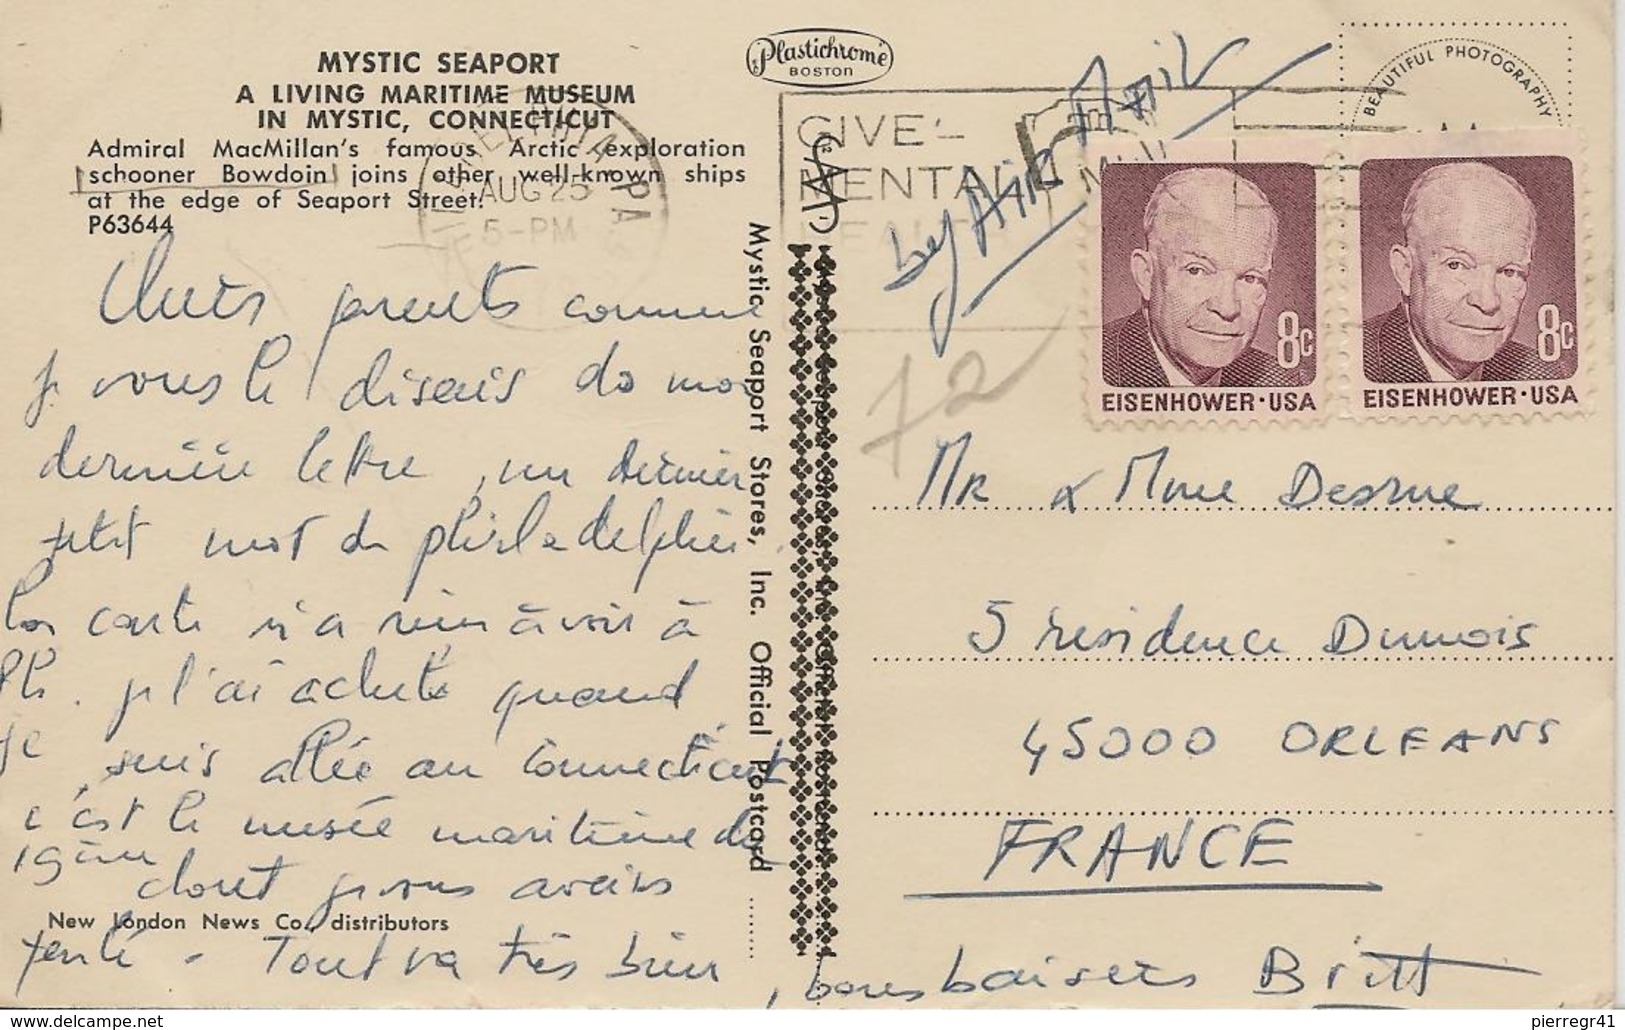 MYSTIC SEAPORT
A LIVING MARITIME MUSEUM
IN MYSTIC, CONNECTICUT
Admiral MacMillan's famous Arctic exploration
schooner Bowdoin joins other well-known ships
at the edge of Seaport Street.
P63644
Chers parents comme
je vous le disais ds ma
dernière lettre, un dernier
petit mot de philadelphie.
La carte n'a rien à voir à
Ph. je l'ai achetée quand
je suis allée au Connecticut
c'est le musée maritime du
19ème dont je vous avais
New London News Co., distributors
parlé - Tout va très bien, bons baisers Britt
Mystic Seaport Stores, Inc. Official Postcard
Plastichrome
BOSTON
PHILADELPHIA, PA
AUG 25
5-PM
GIVE -
MENTAL
HEALTH
by Air Mail
72
BEAUTIFUL PHOTOGRAPHY
8c
EISENHOWER·USA
8c
EISENHOWER·USA
Mr & Mme Desrue
5 résidence Dunois
45000 ORLEANS
FRANCE
pierregr41